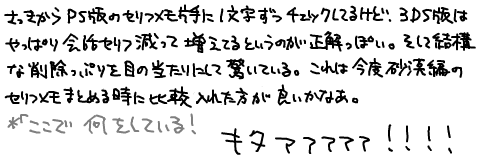 さっきからPS版のセリフメモ片手に1文字ずつチェックしてるけど、3DS版は
やっぱり会話セリフ減って増えてるというのが正解っぽい。そして結構
な削除っぷりを目の当たりにして驚いている。これは今度砂漠編の
セリフメモまとめる時に比較入れた方が良いかなあ。
*「ここで 何をしている!
キタァァァァァ!!!!